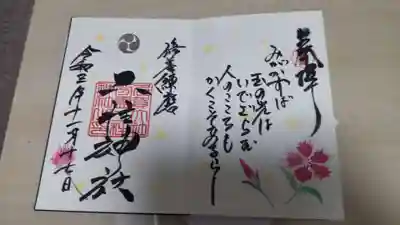 奉拝
みがかずば
玉の光は
いでざらむ
人のこころも
かくこそあるらし
修養練磨
二柱神社
令和三年十一月十七日